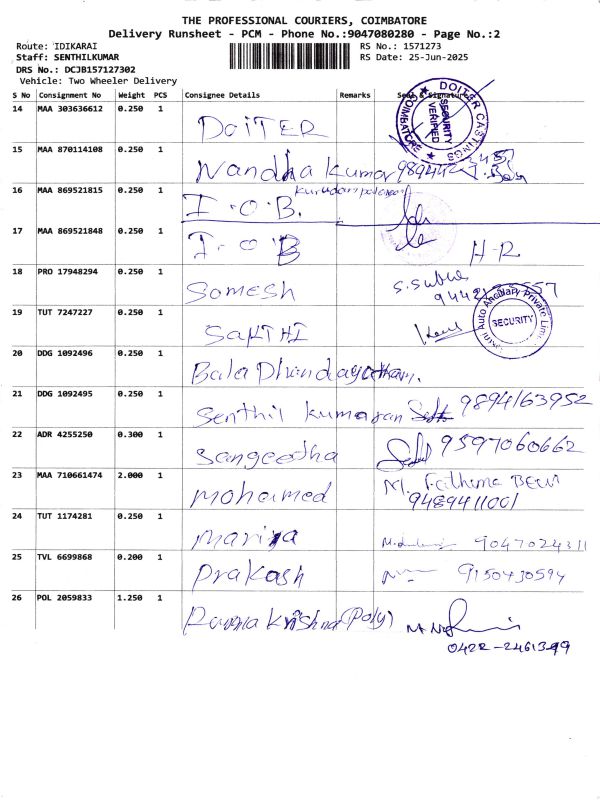 THE PROFESSIONAL COURIERS, COIMBATORE
Delivery Runsheet - PCM - Phone No.:9047080280 - Page No.:2
Route: IDIKARAI RS No.: 1571273
Staff: SENTHILKUMAR RS Date: 25-Jun-2025
DRS No.: DCJB157127302
Vehicle: Two Wheeler Delivery
S No Consignment No Weight PCS Consignee Details Remarks Seal & Signature
14 MAA 303636612 0.250 1 DOITER DOITER CASTINGS COIMBATORE SECURITY VERIFIED
15 MAA 870114108 0.250 1 Nandha Kumar
16 MAA 869521815 0.250 1 I.O.B.
17 MAA 869521848 0.250 1 I-O B H-R
18 PRO 17948294 0.250 1 Somesh
19 TUT 7247227 0.250 1 SAKTHI Auto Ancillary Private SECURITY
20 DDG 1092496 0.250 1
21 DDG 1092495 0.250 1 Senthil kumaran 9894163952
22 ADR 4255250 0.300 1 Sangeetha 9597060662
23 MAA 710661474 2.000 1 Mohamed M. Fathima Beevi
9489411001
24 TUT 1174281 0.250 1 Mariya 9047024311
25 TVL 6699868 0.200 1 Prakash 9150430594
26 POL 2059833 1.250 1 Krishna (Poly)
0422-2461399